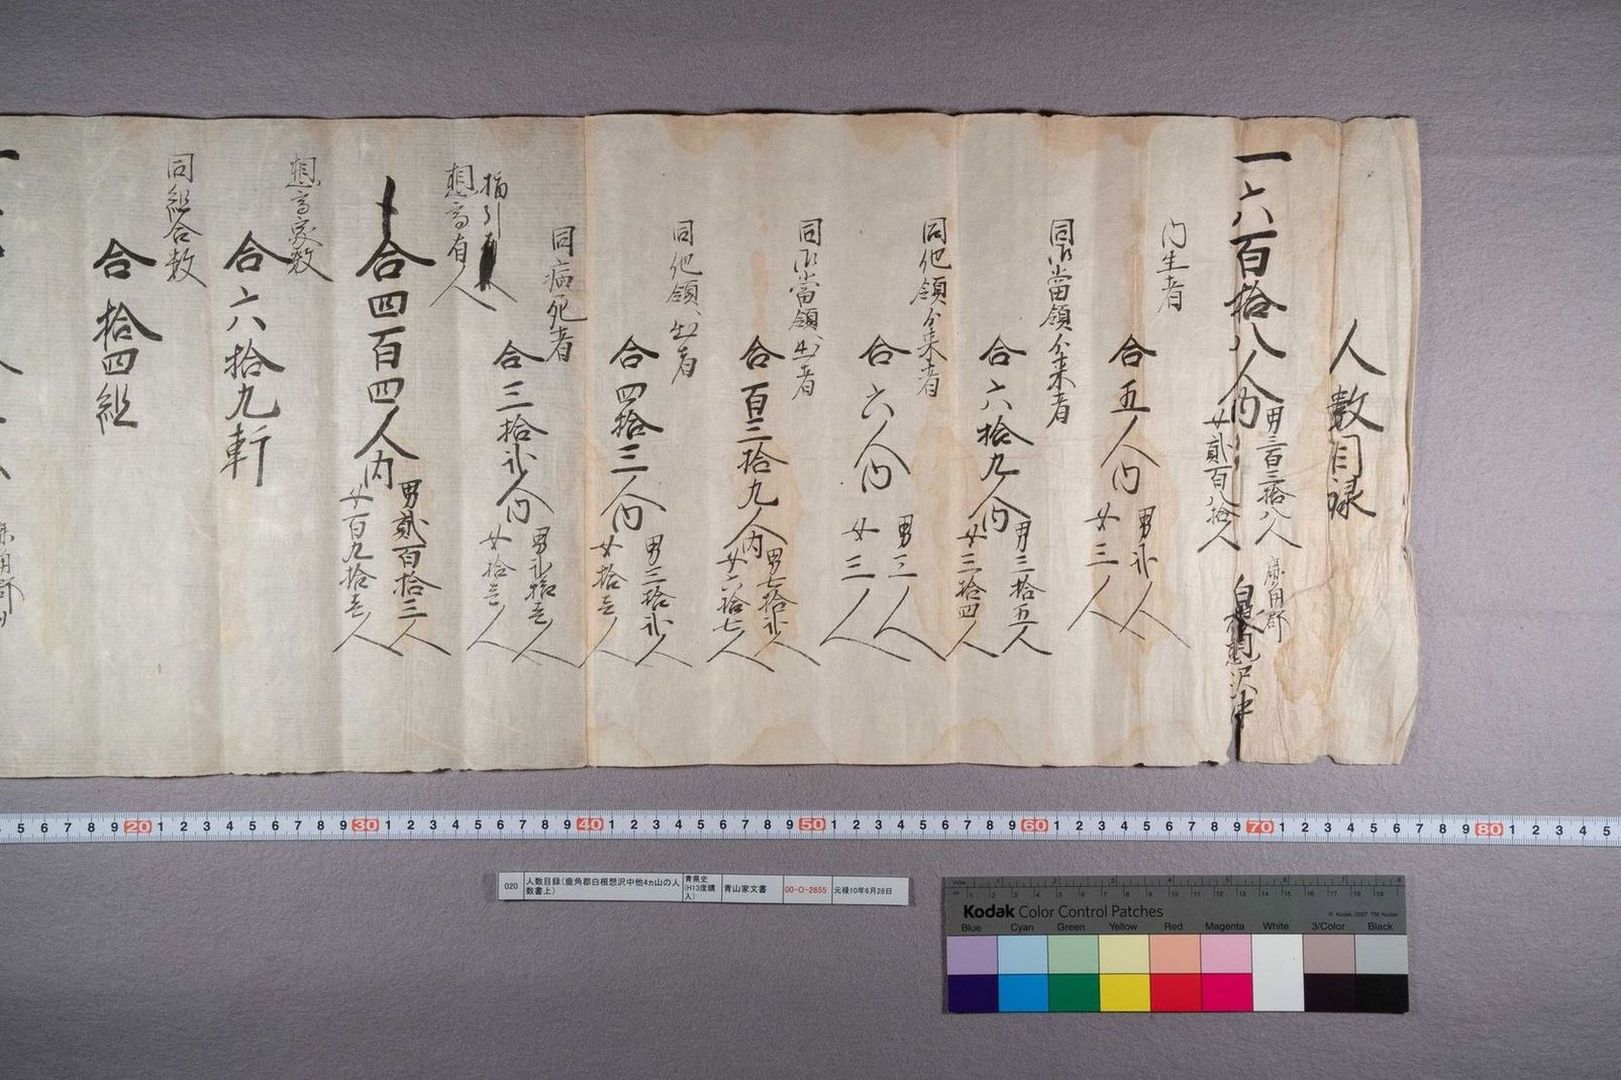 人数目録
一六百拾八人内
男三百三拾八人
女貳百八拾人
鹿角郡
白根想沢中
内生者
合五人内
男弐人
女三人
同御當領ゟ来者
合六拾九人内
男三拾五人
女三拾四人
同他領ゟ来者
合六人内
男三人
女三人
同御當領出者
合百三拾九人内
男七拾弐人
女六拾七人
同他領出者
合四拾三人内
男三拾弐人
女拾壱人
同病死者
合三拾弐人内
男弐拾壱人
女拾壱人
指引
想高有人
合四百四人内
男貳百拾三人
女百九拾壱人
想高家数
合六拾九軒
同組合数
合拾四組
020 人数目録(鹿角郡白根想沢中他4ヵ山の人数書上) 青県史(H13度購入) 青山家文書 00-O-2855 元禄10年6月28日
4 5 6 7 8 9 20 1 2 3 4 5 6 7 8 9 30 1 2 3 4 5 6 7 8 9 40 1 2 3 4 5 6 7 8 9 50 1 2 3 4 5 6 7 8 9 60 1 2 3 4 5 6 7 8 9 70 1 2 3 4 5 6 7 8 9 80 1 2 3 4 5
Kodak Color Control Patches
© Kodak, 2007 TM: Kodak
Blue Cyan Green Yellow Red Magenta White 3/Color Black